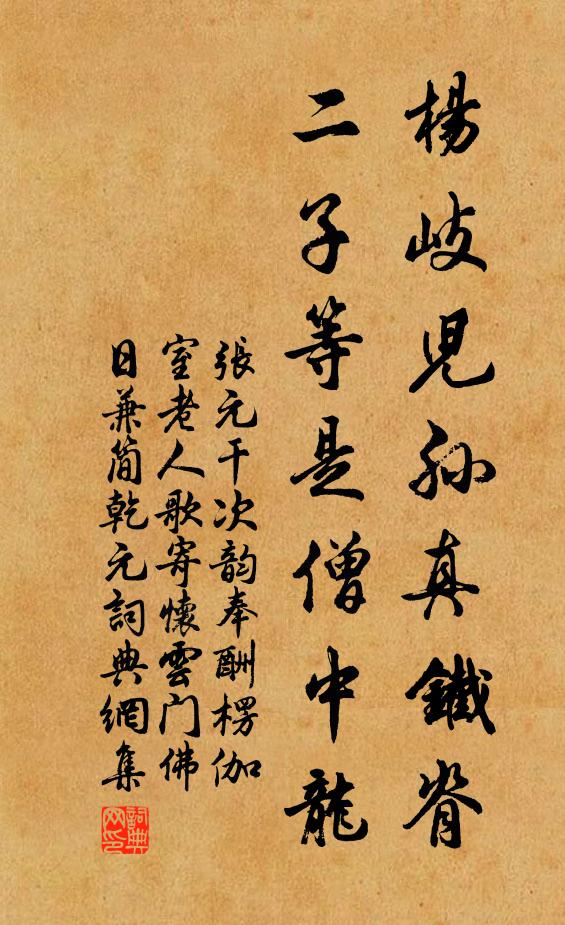 楊岐兒孫真鐵脊
二子等是僧中龍
張元干次韵奉酬楞伽
室老人歌寄懷雲门佛
日兼簡乾元詞典網集
詞典网印